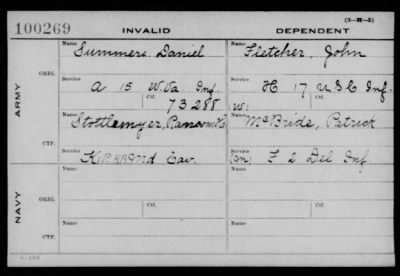 (3-H-5)
100269 INVALID DEPENDENT
ARMY
ORIG.
Name Summers Daniel
Name Fletcher, John
Service A 15 W.Va Inf.
Service H 17 U S C Inf.
Ctf. 73288
Ctf. (W)
CTF.
Name Stottlemyer,
Name McBride, Patrick
Service Cav.
Service F 2 Del Inf
NAVY
ORIG.
Name
Name
Service
Ctf.
Service
Ctf.
CTF.
Name
Name